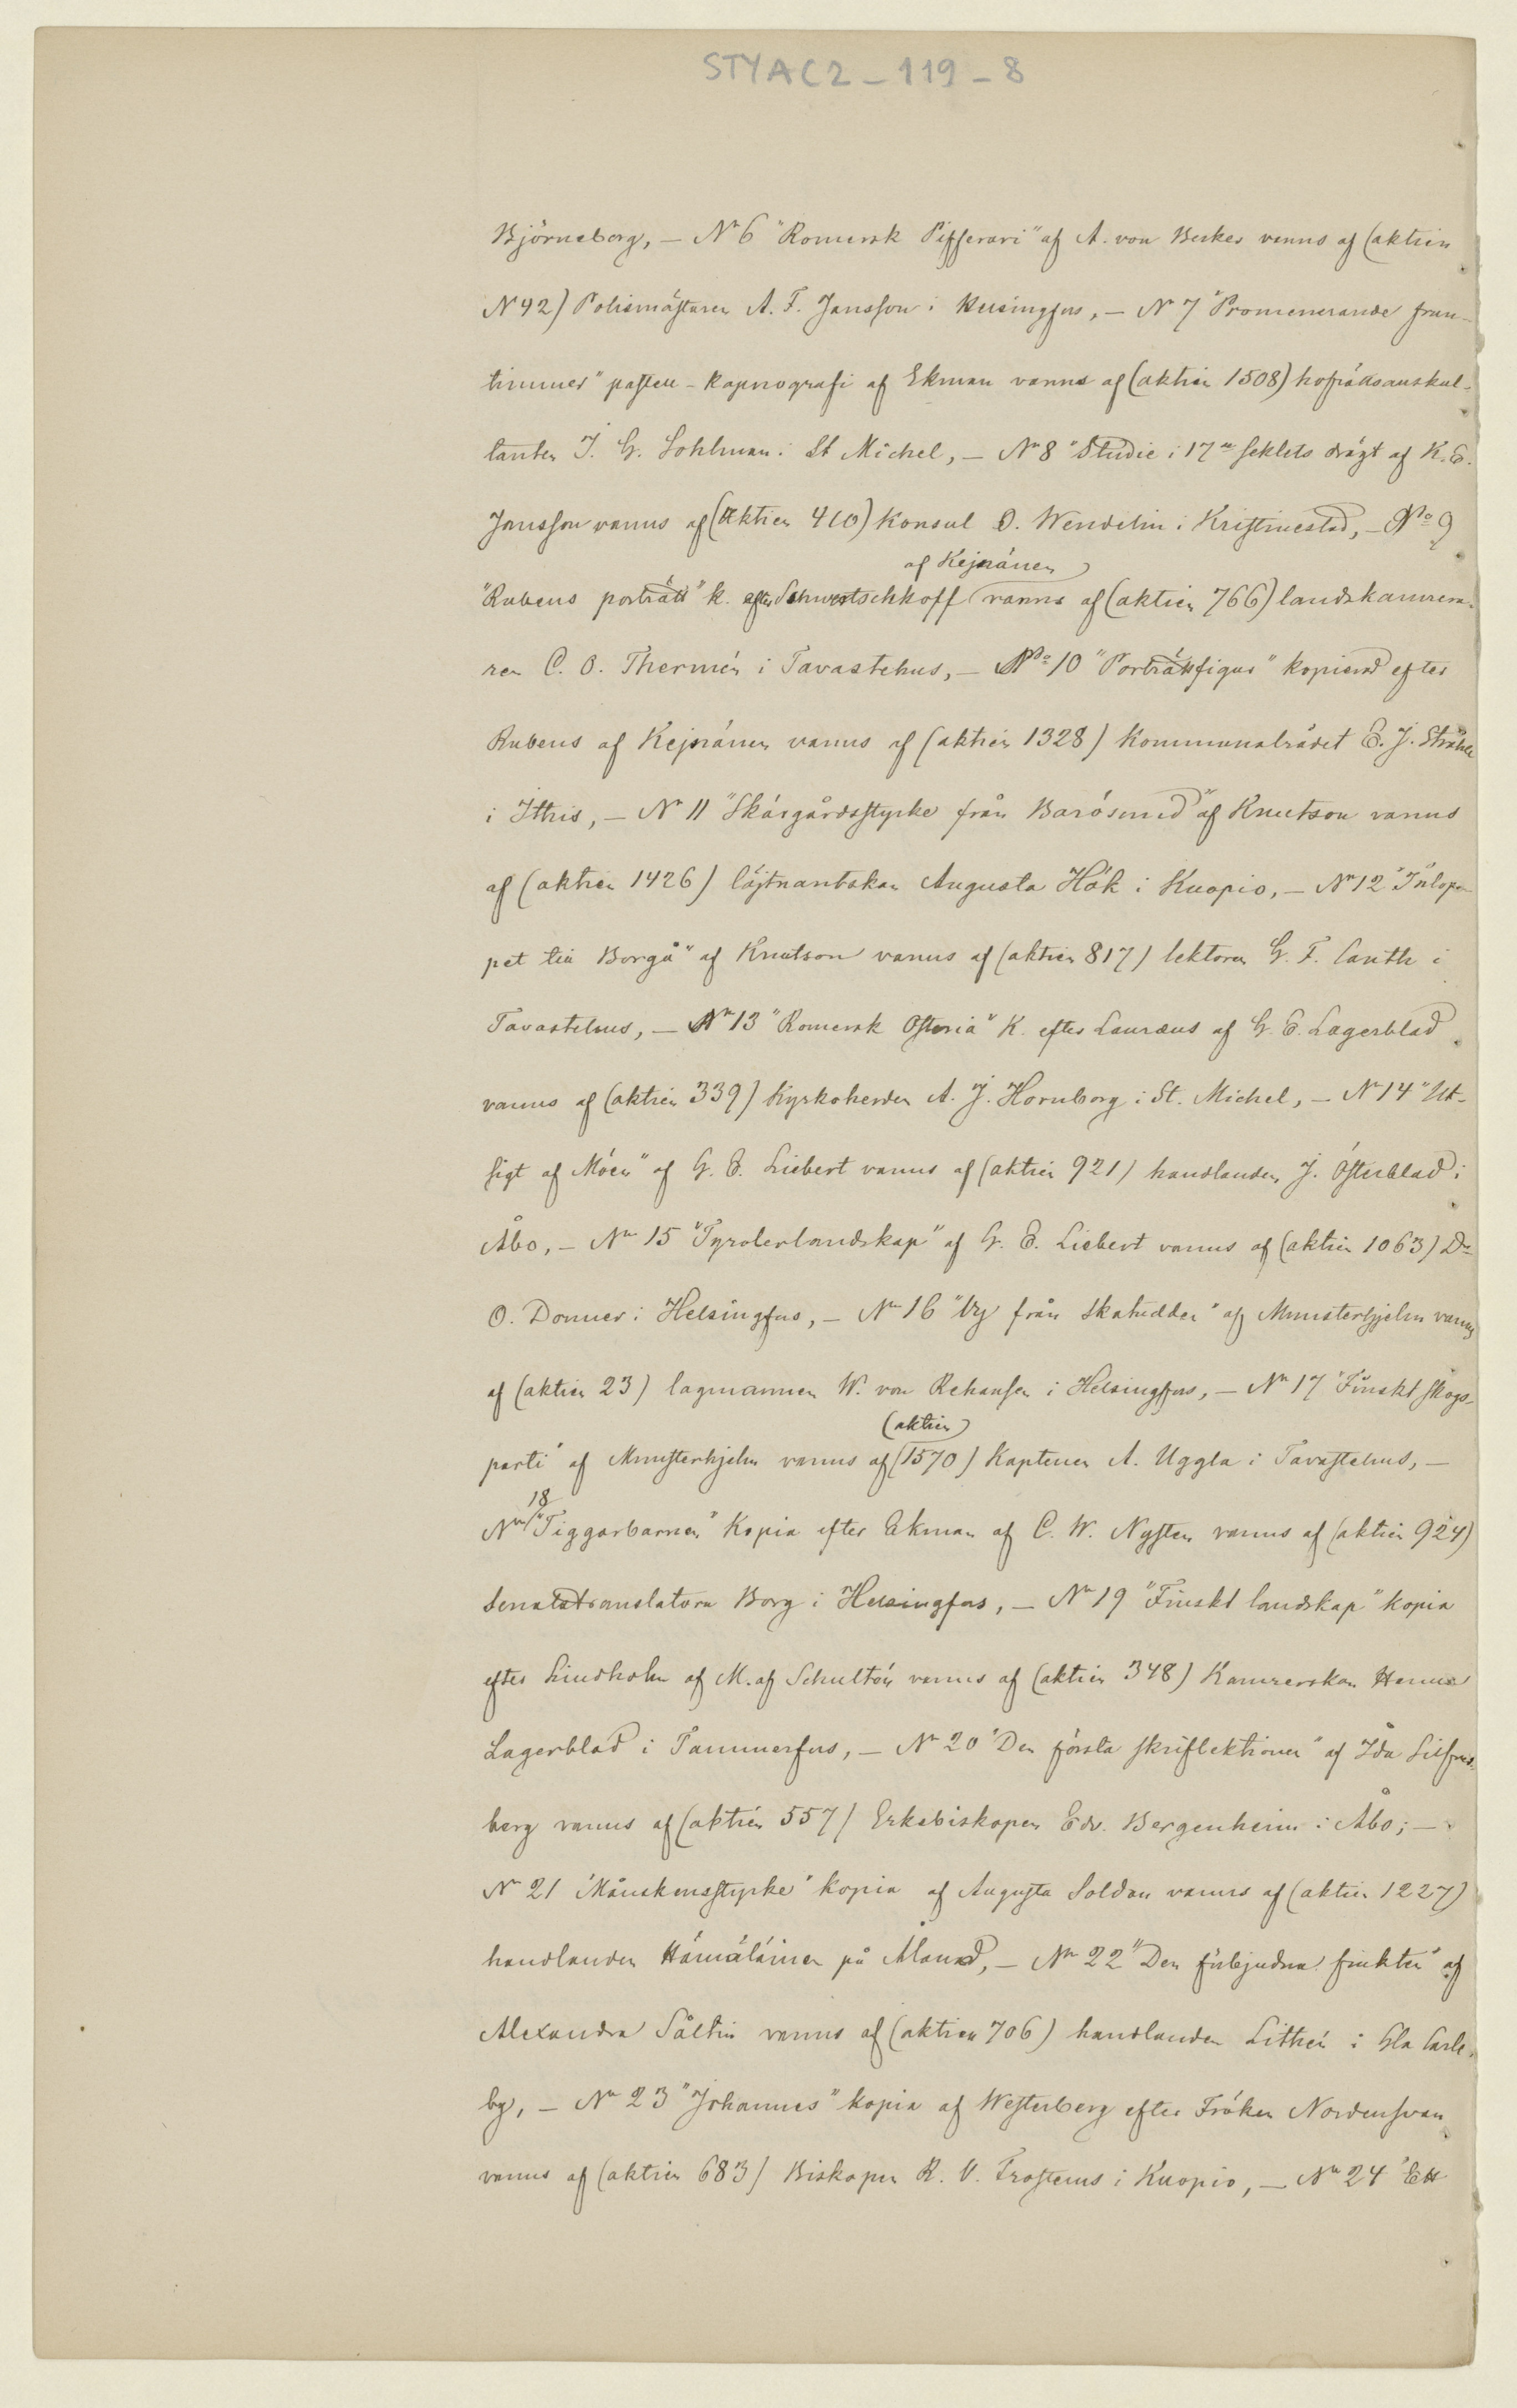 STYAC2-119-8
Björneborg, – Nr 6 "Romersk Pifferari" af A. von Becker vanns af (aktien
N 42) Polismästaren A. F. Jansson i Helsingfors, – Nr 7 "Promenerande frun-
timmer" pastell-kapnografi af Ekman vanns af (aktien 1508) hofrättsauskul-
tanten J. G. Sohlman i St Michel, – Nr 8 "Studie i 17de seklets drägt af K. E.
Jansson vanns af (aktien 410) Konsul O. Wendelin i Kristinestad, – No 9
af Kejnänen
"Rubens porträtt" k. efter Schwertschkoff vanns af (aktien 766) landskamrera-
ren C. O. Thermén i Tavastehus, – No 10 "Porträttfigur" kopierad efter
Rubens af Kejnänen vanns af (aktien 1328) Kommunalrådet E. J. Stråhle
i Ithis, – Nr 11 "Skärgårdsstycke från Barösund" af Knutson vanns
af (aktien 1426) löjtnantskan Augusta Hök i Kuopio, – Nr 12 "Inlop-
pet till Borgå" af Knutson vanns af (aktien 817) lektoren G. F. Canth i
Tavastehus, – Nr 13 "Romersk Osteria" K. efter Lauræus af G. E. Lagerblad
vanns af (aktien 339) Kyrkoherden A. J. Hornborg i St. Michel, – Nr 14 "Ut-
sigt af Möen" af G. E. Liebert vanns af (aktien 921) handlanden J. Österblad i
Åbo, – Nr 15 "Tyrolerlandskap" af G. E. Liebert vanns af (aktien 1063) Dr
O. Donner i Helsingfors, – Nr 16 "Vy från Skatudden" af Munsterhjelm vanns
af (aktien 23) lagmannen W. von Rehausen i Helsingfors, – Nr 17 "Finskt skogs-
(aktien)
parti" af Munsterhjelm vanns af (1570) Kaptenen A. Uggla i Tavastehus, –
18
Nr "Tiggarbarnen" Kopia efter Ekman af C. W. Nysten vanns af (aktien 924)
Senatstranslatorn Borg i Helsingfors, – Nr 19 "Finskt landskap" kopia
efter Lindholm af M. af Schultén vanns af (aktien 348) Kamrerskan Hanna
Lagerblad i Tammerfors, – Nr 20 "Den första skriflektionen" af Ida Silfver-
berg vanns af (aktien 557) Erkebiskopen Edv. Bergenheim i Åbo; –
Nr 21 "Månskensstycke" kopia af Augusta Soldan vanns af (aktien 1227)
handlanden Hämäläinen på Åland, – Nr 22 "Den förbjudna frukten" af
Alexandra Såltin vanns af (aktien 706) handlanden Lithén i Gla Carle-
by, – Nr 23 "Johannes" kopia af Westerberg efter Fröken Nordensvan
vanns af (aktien 683) Biskopen R. V. Frosterus i Kuopio, – Nr 24 "Ett